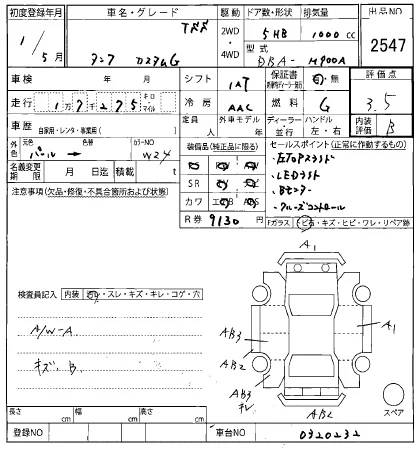 初度登録年月 車名・グレード 駆動 ドア数・形状 排気量 出品NO
1/5月 タンク カスタムG 2WD・4WD 5HB 1000cc 2547
型式 DBA- M900A
車検 年 月 シフト IAT 保証書 有・無 評価点
走行 17275 キロ・マイル 冷房 AAC 燃料 G 3.5
車歴 自家用・レンタ・事業用( ) 定員 人 外車モデル 年 ディーラー・並行 ハンドル 左・右 内装評価 B
外色 元色 パール → 色替 カラーNO W24
装備品(純正品に限る) セールスポイント(正常に動作するもの)
名義変更期限 月 日迄 積載 t
・LEDライト
・クルーズコントロール
注意事項(欠品・修復・不具合箇所および状態)
SR
カワ
R券 9130 円
Fガラス トビ石・キズ・ヒビ・ワレ・リペア跡
検査員記入 内装 ・スレ・キズ・キレ・コゲ・穴
A/W-A
キズ、B
A1
AB3
AB2
A1
AB3
キレ
AB2
スペア
長さ cm 幅 cm 高さ cm
登録NO 車台NO 0320232